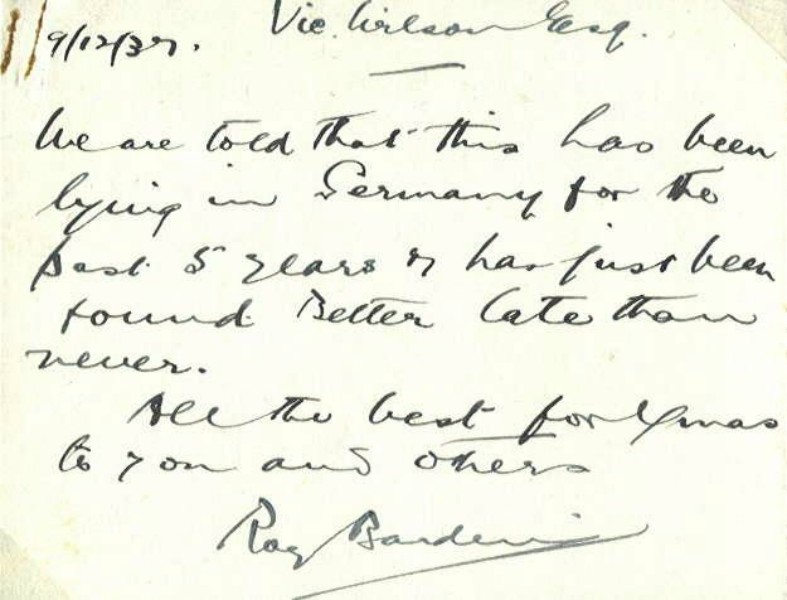 9/12/37.
Vic. Wilson Esq.
We are told that this has been
lying in Germany for the
past 5 years & has just been
found Better late than
never.
All the best for Xmas
to you and others
Roy